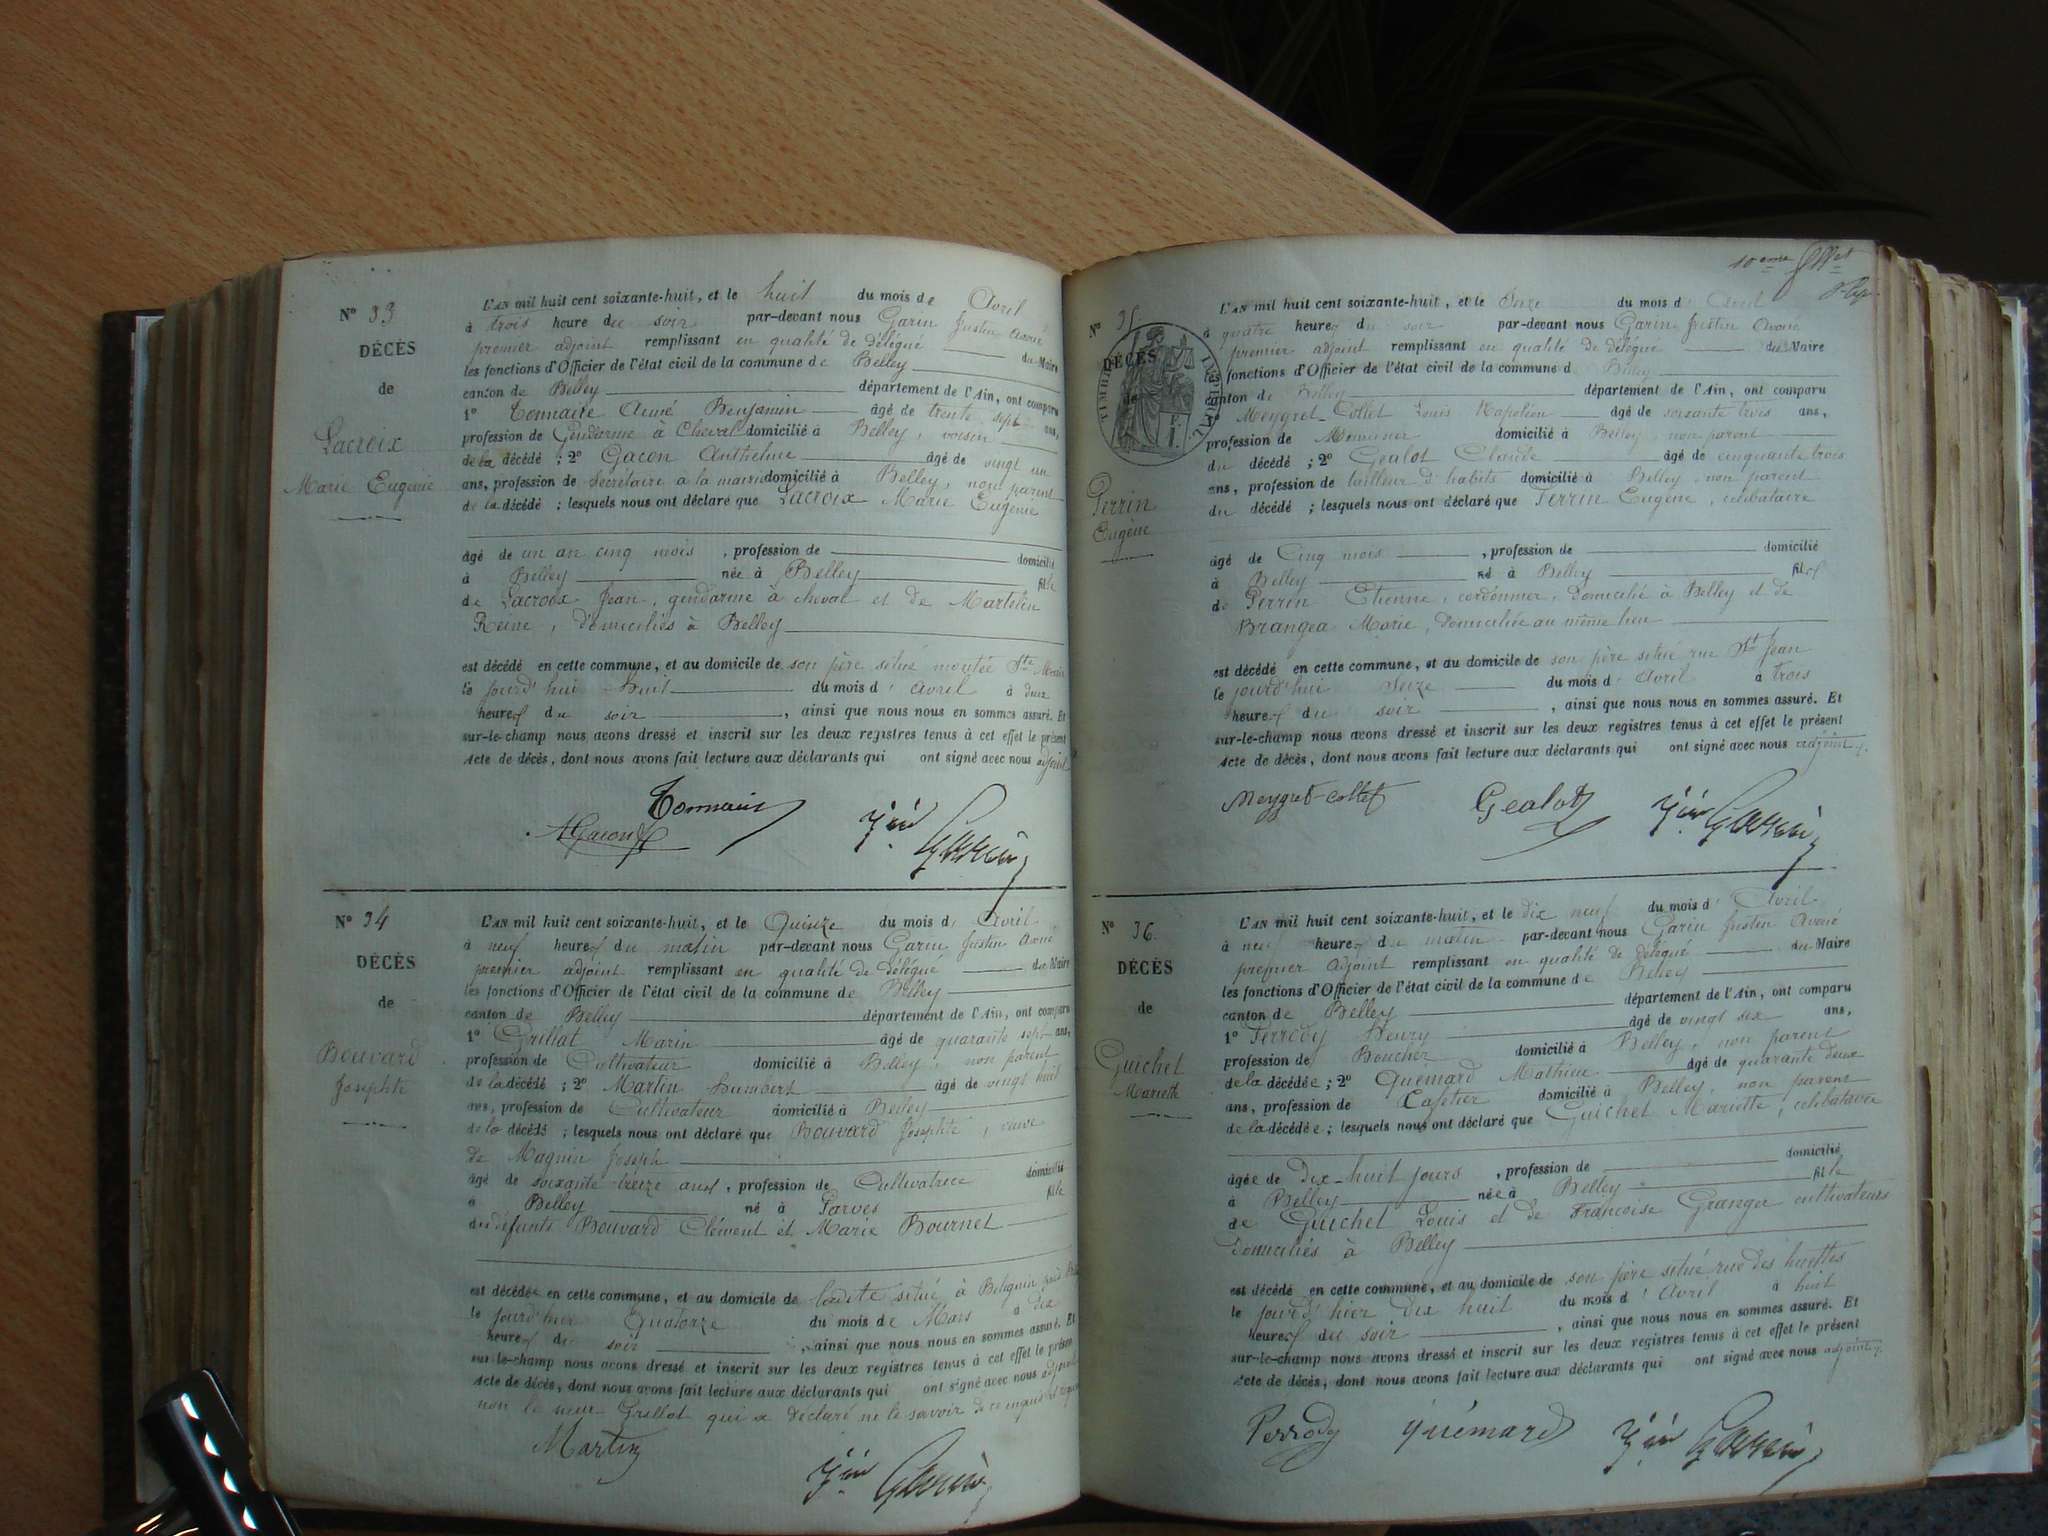 N° 33
DÉCÈS
de
Lacroix
Marie Eugénie
L'AN mil huit cent soixante-huit, et le huit du mois de Avril
à trois heure du soir par-devant nous Garin Justin Avoué
premier adjoint remplissant en qualité de délégué du Maire
les fonctions d'Officier de l'état civil de la commune de Belley
canton de Belley département de l'Ain, ont comparu
1° Tonnaire Aimé Benjamin âgé de trente sept ans,
profession de Gendarme à cheval domicilié à Belley, voisin
de la décédé ; 2° Gacon Anthelme âgé de vingt un
ans, profession de Secrétaire à la mairie domicilié à Belley, non parent
de la décédé ; lesquels nous ont déclaré que Lacroix Marie Eugénie
âgé de un an cinq mois , profession de domicilié
à Belley née à Belley fille
de Lacroix Jean, gendarme à cheval et de Martelin
Reine, domiciliés à Belley
est décédé en cette commune, et au domicile de son père situé montée Ste Marie
le jourd'hui huit du mois d'avril à deux
heures du soir , ainsi que nous nous en sommes assuré. Et
sur-le-champ nous avons dressé et inscrit sur les deux registres tenus à cet effet le présent
acte de décès, dont nous avons fait lecture aux déclarants qui ont signé avec nous adjoint
Tonnaire
AGacon
Jin Garin
N° 34
DÉCÈS
de
Bouvard
Josephte
L'AN mil huit cent soixante-huit, et le Quinze du mois d'Avril
à neuf heures du matin par-devant nous Garin Justin Avoué
premier adjoint remplissant en qualité de délégué du Maire
les fonctions d'Officier de l'état civil de la commune de Belley
canton de Belley département de l'Ain, ont comparu
1° Grillat Marin âgé de quarante sept ans,
profession de Cultivateur domicilié à Belley, non parent
de la décédé ; 2° Martin humbert âgé de vingt huit
ans, profession de Cultivateur domicilié à Belley
de la décédé ; lesquels nous ont déclaré que Bouvard Josephte, veuve
de Magnin Joseph
âgé de soixante treize ans , profession de Cultivatrice domicilié
à Belley né à Parves fille
des défunts Bouvard Clément et Marie Bournet
est décédée en cette commune, et au domicile de ladite situé à
le jourd'hier Quatorze du mois de Mars à dix
heures du soir , ainsi que nous nous en sommes assuré. Et
sur-le-champ nous avons dressé et inscrit sur les deux registres tenus à cet effet le présent
acte de décès, dont nous avons fait lecture aux déclarants qui ont signé avec nous adjoint
non le sieur Grillot qui a déclaré ne le savoir de ce enquis et requis
Martin
Jin Garin
10ème
N° 35
DÉCÈS
de
TIMBRE IMPÉRIAL
Perrin
Eugène
L'AN mil huit cent soixante-huit, et le Seize du mois d'Avril
à quatre heures du soir par-devant nous Garin Justin Avoué
premier adjoint remplissant en qualité de délégué du Maire
les fonctions d'Officier de l'état civil de la commune d Belley
canton de Belley département de l'Ain, ont comparu
Meygret-Collet Louis Napoléon âgé de soixante trois ans,
profession de Menuisier domicilié à Belley, non parent
du décédé ; 2° Gealot Claude âgé de cinquante trois
ans, profession de tailleur d'habits domicilié à Belley, non parent
du décédé ; lesquels nous ont déclaré que Perrin Eugène, célibataire
âgé de Cinq mois , profession de domicilié
à Belley né à Belley fils
de Perrin Etienne, cordonnier, domicilié à Belley et de
Brangea Marie, domiciliée au même lieu
est décédé en cette commune, et au domicile de son père situé rue St Jean
le jourd'hui Seize du mois d'Avril à trois
heures du soir , ainsi que nous nous en sommes assuré. Et
sur-le-champ nous avons dressé et inscrit sur les deux registres tenus à cet effet le présent
acte de décès, dont nous avons fait lecture aux déclarants qui ont signé avec nous adjoint
Meygret-Collet
Gealot
Jin Garin
N° 36
DÉCÈS
de
Guichet
Mariette
L'AN mil huit cent soixante-huit, et le dix neuf du mois d'Avril
à neuf heures du matin par-devant nous Garin Justin Avoué
premier adjoint remplissant en qualité de délégué du Maire
les fonctions d'Officier de l'état civil de la commune de Belley
canton de Belley département de l'Ain, ont comparu
1° Perrody Henry âgé de vingt six ans,
profession de Boucher domicilié à Belley, non parent
de la décédée ; 2° Quémard Mathieu âgé de quarante deux
ans, profession de Cafetier domicilié à Belley, non parent
de la décédée ; lesquels nous ont déclaré que Guichet Mariette, célibataire
âgée de Dix-huit jours , profession de domicilié
à Belley née à Belley fille
de Guichet Louis et de Francoise Granger cultivateurs
domiciliés à Belley
est décédé en cette commune, et au domicile de son père situé rue des huittes
le jourd'hier dix huit du mois d'Avril à huit
heures du soir , ainsi que nous nous en sommes assuré. Et
sur-le-champ nous avons dressé et inscrit sur les deux registres tenus à cet effet le présent
acte de décès, dont nous avons fait lecture aux déclarants qui ont signé avec nous adjoint
Perrody
Quémard
Jin Garin